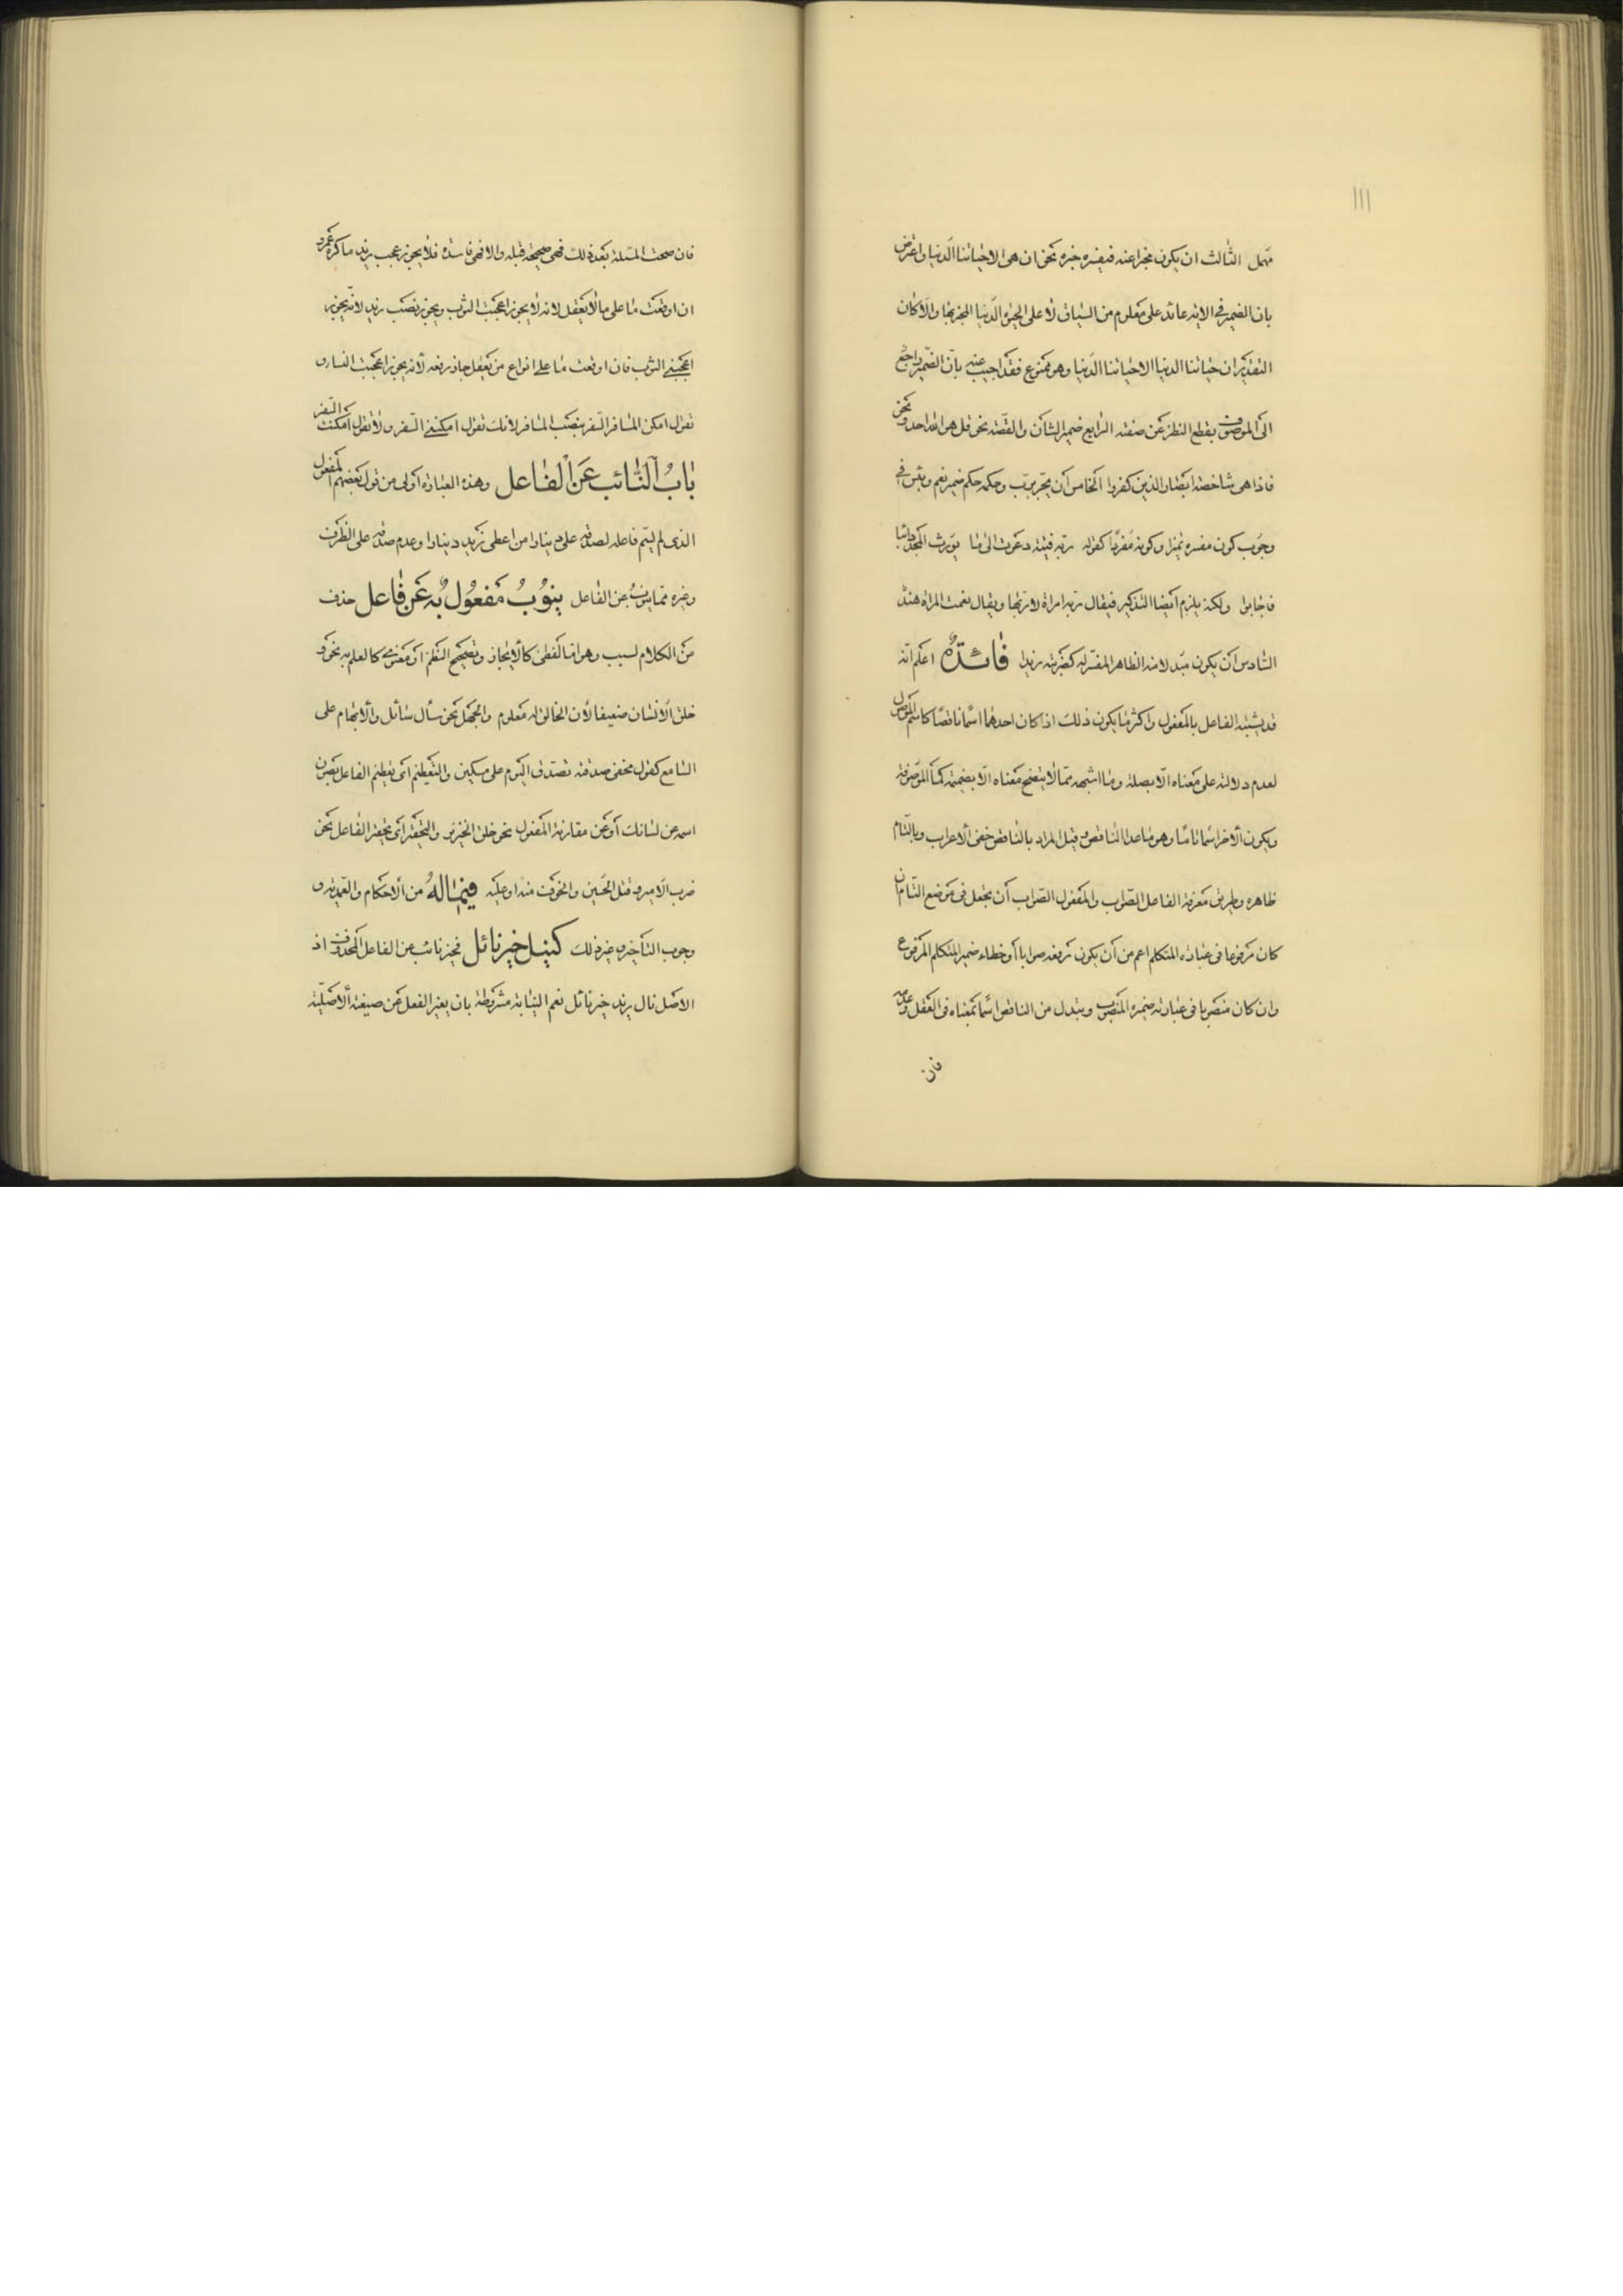 ١١١
مهمل الثالث ان يكون مخبرا عنه فيفسره خبره نحو ان هى الا حياتنا الدنيا واعترض
بان الضمير فى الاية عائد على معلوم من السياق لا على الحيوة الدنيا المخبر بها والا كان
التقدير ان حياتنا الدنيا الا حياتنا الدنيا وهو ممنوع فقد اجيب عنه بان الضمير راجع
الى الموصوف بقطع النظر عن صفته الرابع ضمير الشان والقصة نحو قل هو الله احد ونحو
فاذا هى شاخصة ابصار الذين كفروا الخامس ان يجر برب وحكمه حكم ضمير نعم وبئس فى
وجوب كون مفسره تميزا وكونه مفردا كقوله ربه فتية دعوت الى ما يورث المجد دائبا
فاجابوا ولكنه يلزم ايضا التذكير فيقال ربه امراة لا ربها ويقال نعمت المراة هند
السادس ان يكون مبدلا منه الظاهر المفسر له كضربته زيدا فائدة اعلم انه
قد يشتبه الفاعل بالمفعول واكثر ما يكون ذلك اذا كان احدهما اسما ناقصا كاسم الموصول
لعدم دلالته على معناه الا بصلة وما اشبهه مما لا يتضح معناه الا بضميمة كما الموصوفة
ويكون الاخر اسما تاما وهو ما عدا الناقص وقيل المراد بالناقص خفى الاعراب وبالتام
ظاهره وطريق معرفة الفاعل الصواب والمفعول الصواب ان يجعل فى موضع التام ان
كان مرفوعا فى عبارة المتكلم اعم من ان يكون رفعه صوابا أو خطاء ضمير المتكلم المرفوع
وان كان منصوبا فى عبارته ضميره المنصوب ويبدل من الناقص اسما بمعناه فى العقل وعدمه
فان
فان صحت المسئلة بعد ذلك فهى صحيحة قبله والا فهى فاسدة فلا يجوز عجب زيد ما كره عمرو
ان اوقعت ما على ما لا يعقل لانه لا يجوز اعجبت الثوب ويجوز نصب زيد لانه يجوز
اعجبنى الثوب فان اوقعت ما على انواع من يعقل جاز رفعه لانه يجوز اعجبت النساء و
تقول امكن المسافر السفر بنصب المسافر لانك تقول امكننى السفر ولا تقول امكنت السفر
باب النائب عن الفاعل وهذه العبارة اولى من قول بعضهم المفعول
الذى لم يسم فاعله لصدقه على دينارا من اعطى زيد دينارا وعدم صدقه على الظرف
وغيره مما ينوب عن الفاعل ينوب مفعول به عن فاعل حذف
من الكلام لسبب وهو اما لفظى كالايجاز وتصحيح النظم او معنوى كالعلم به نحو و
خلق الانسان ضعيفا لان الخالق له معلوم والجهل نحو سأل سائل والابهام على
السامع كقول مخفى صدقته تصدق اليوم على مسكين والتعظيم اى تعظيم الفاعل بصون
اسمه عن لسانك أو عن مقارنة المفعول نحو خلق الخنزير والتحقير اى تحقير الفاعل نحو
ضرب الامير وقتل الحسين والخوف منه او عليه فيما له من الاحكام والعمدية و
وجوب التأخير وغير ذلك كنيل خير نائل فخير نائب عن الفاعل المحذوف اذ
الاصل نال زيد خير نائل نعم النيابة مشروطة بان يغير الفعل عن صيغته الاصلية